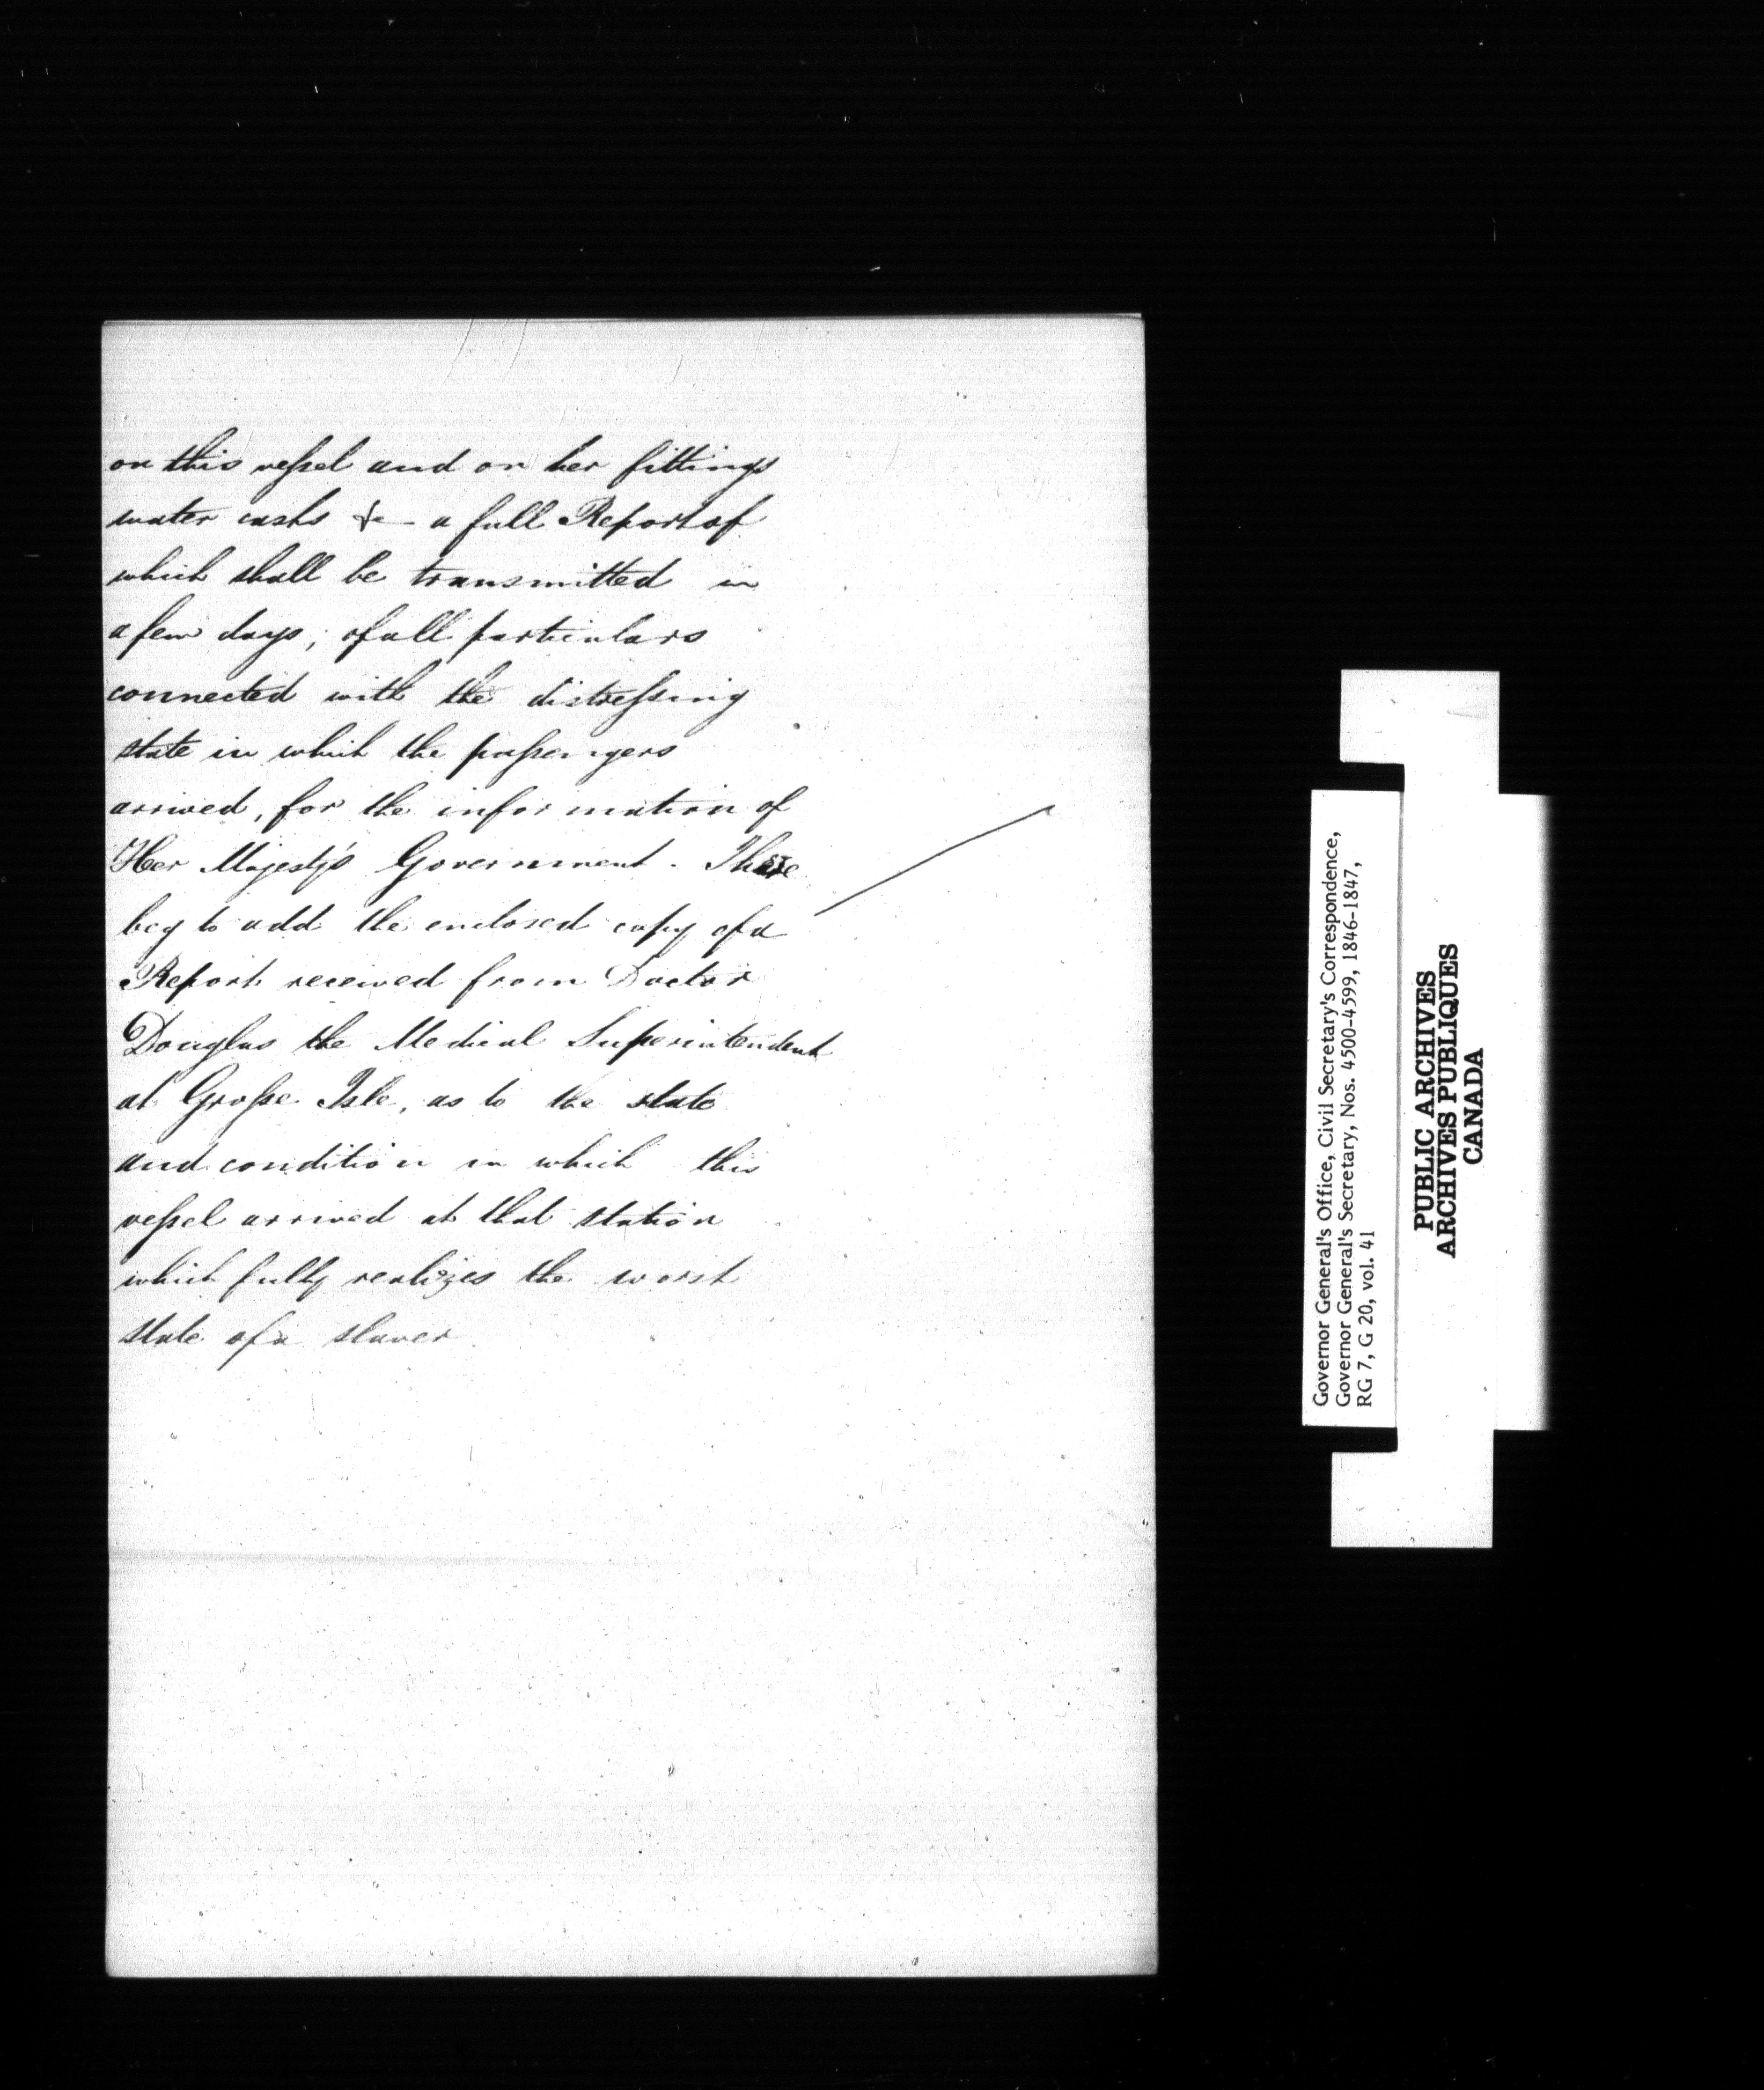 on this veſsel and on her fittings
water casks &c a full Report of
which shall be transmitted in
a few days, of all particulars
connected with the distreſsing
state in which the paſsengers
arrived, for the information of
Her Majesty's Government. I have
beg to add the enclosed copy of a
Report received from Doctor
Douglas the Medical Superintendent
at Groſse Isle, as to the state
and condition in which this
veſsel arrived at that station
which fully realizes the worst
state of a slaver
Governor General's Office, Civil Secretary's Correspondence,
Governor General's Secretary, Nos. 4500-4599, 1846-1847,
RG 7, G 20, vol. 41
PUBLIC ARCHIVES
ARCHIVES PUBLIQUES
CANADA